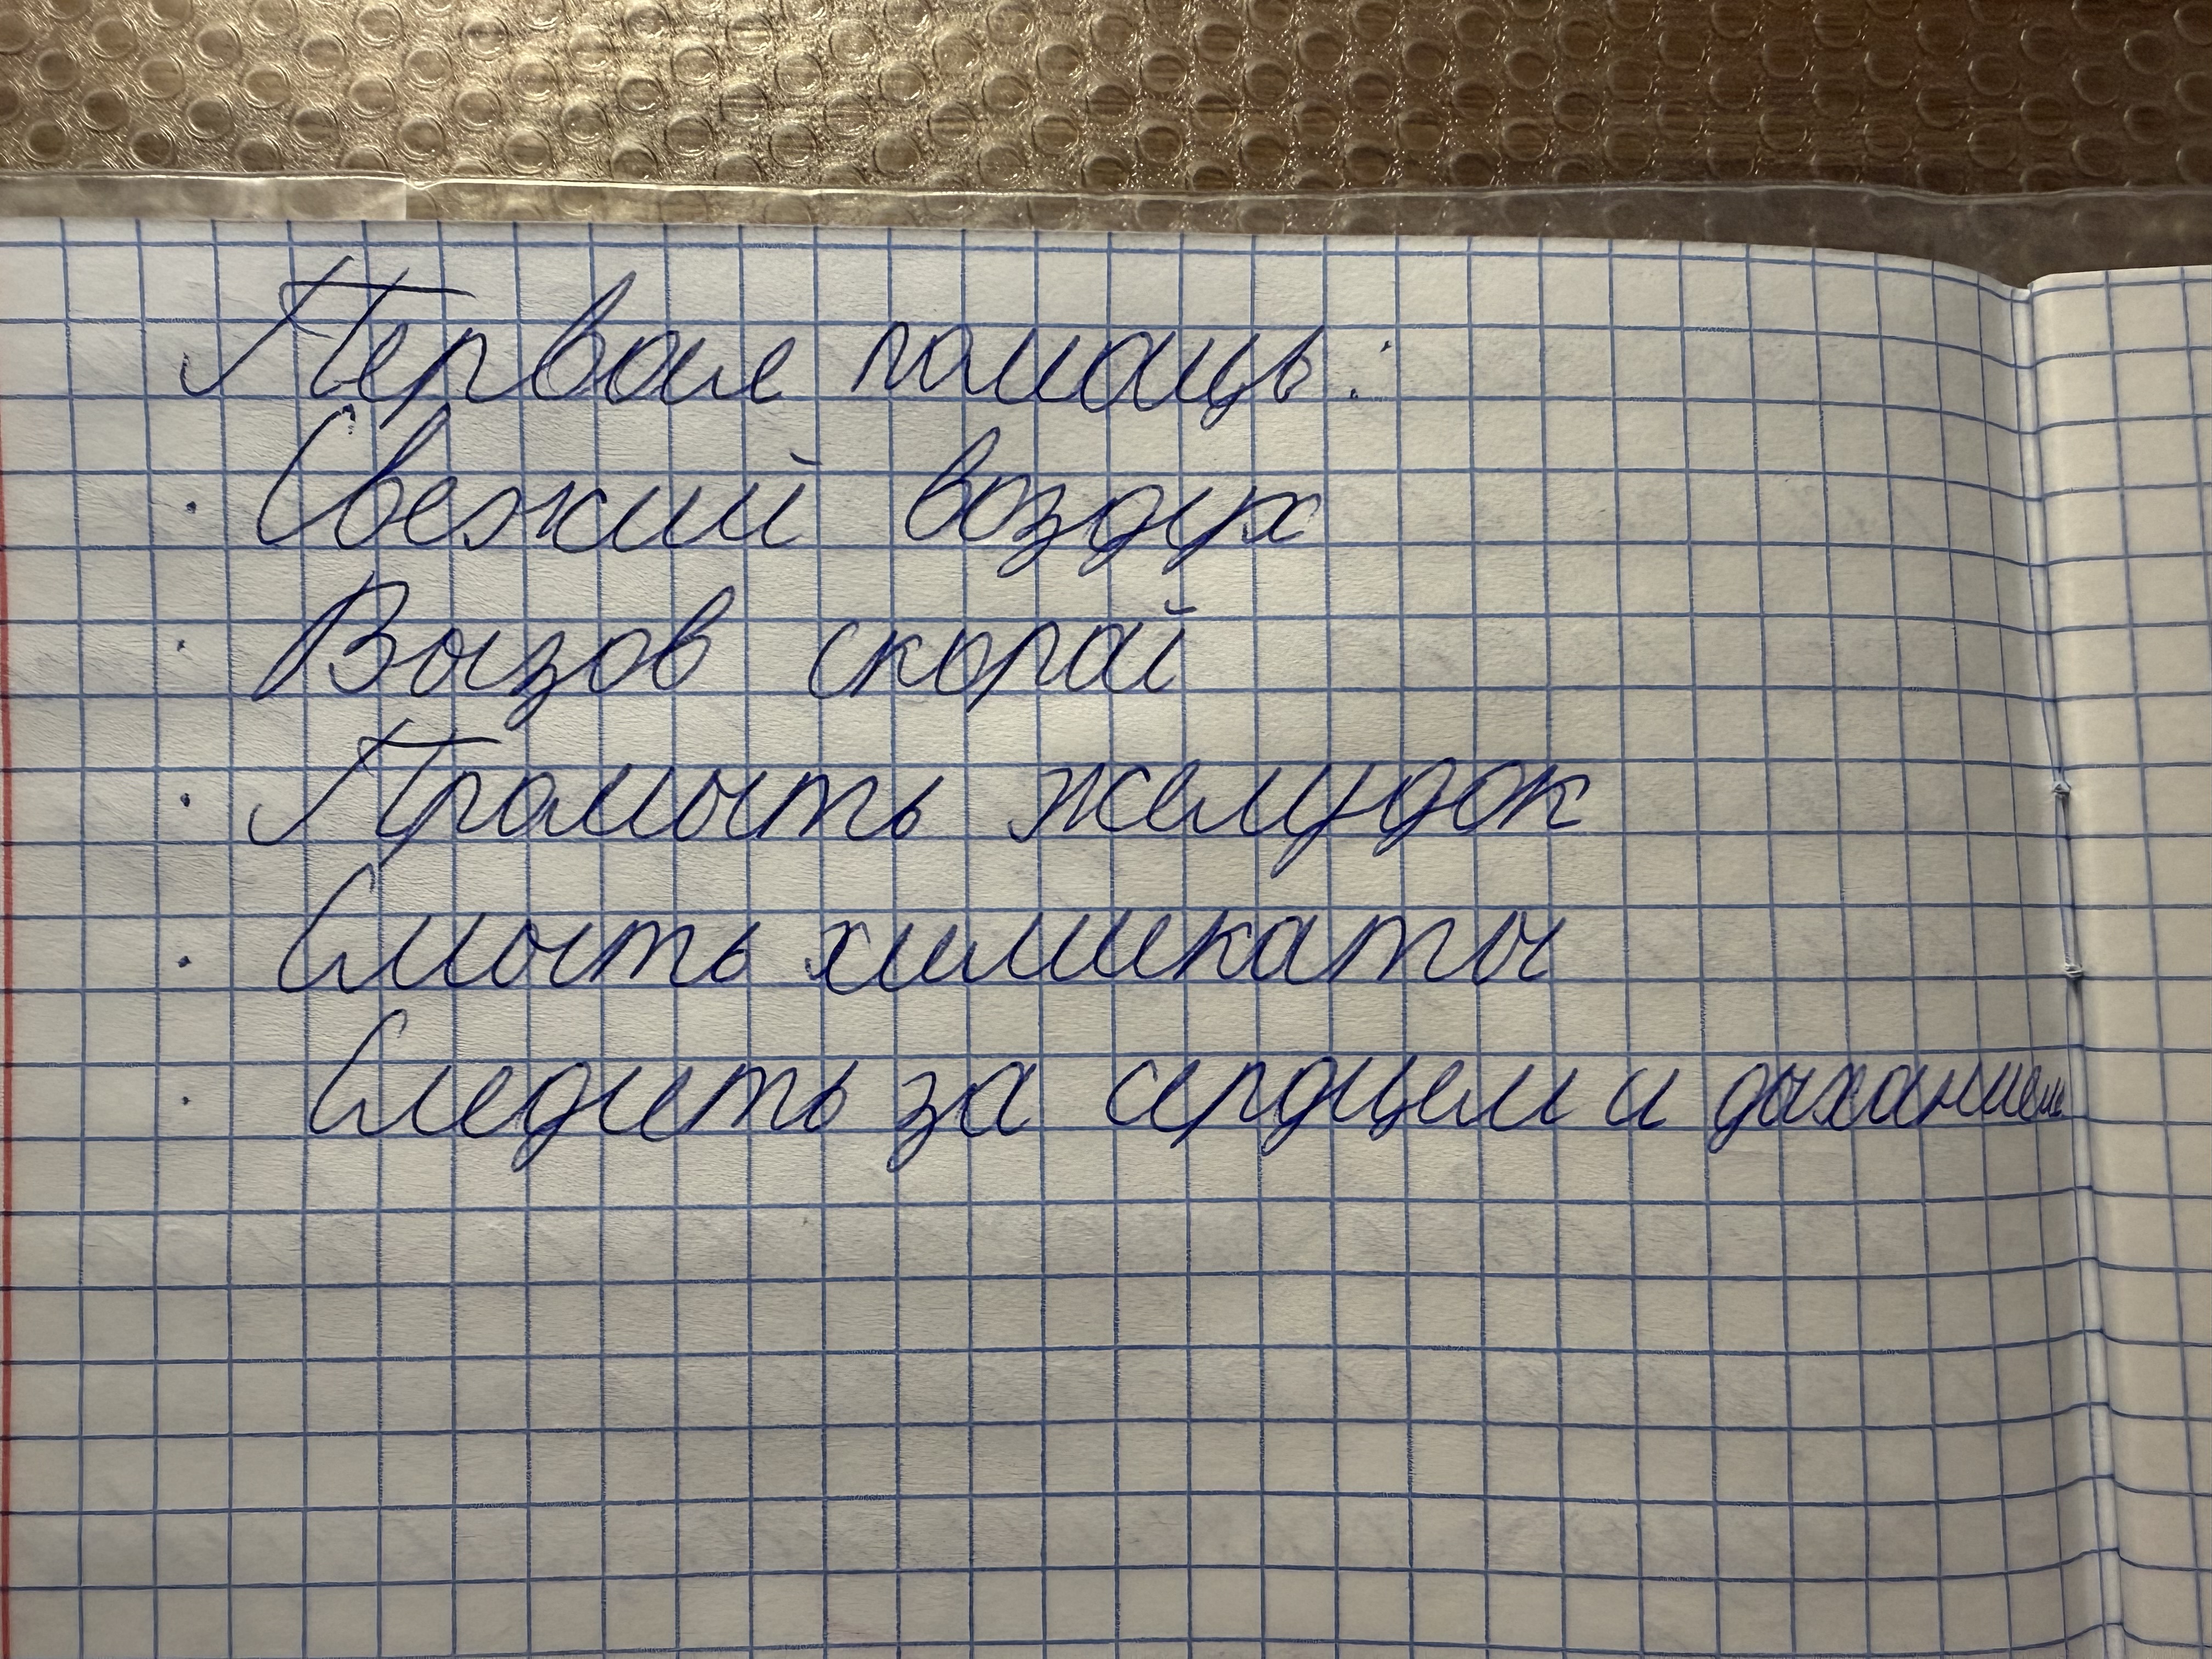 Первая помощь:
· Свежий воздух
· Вызов скорой
· Промыть желудок
· Смыть химикаты
· Следить за сердцем и дыханием